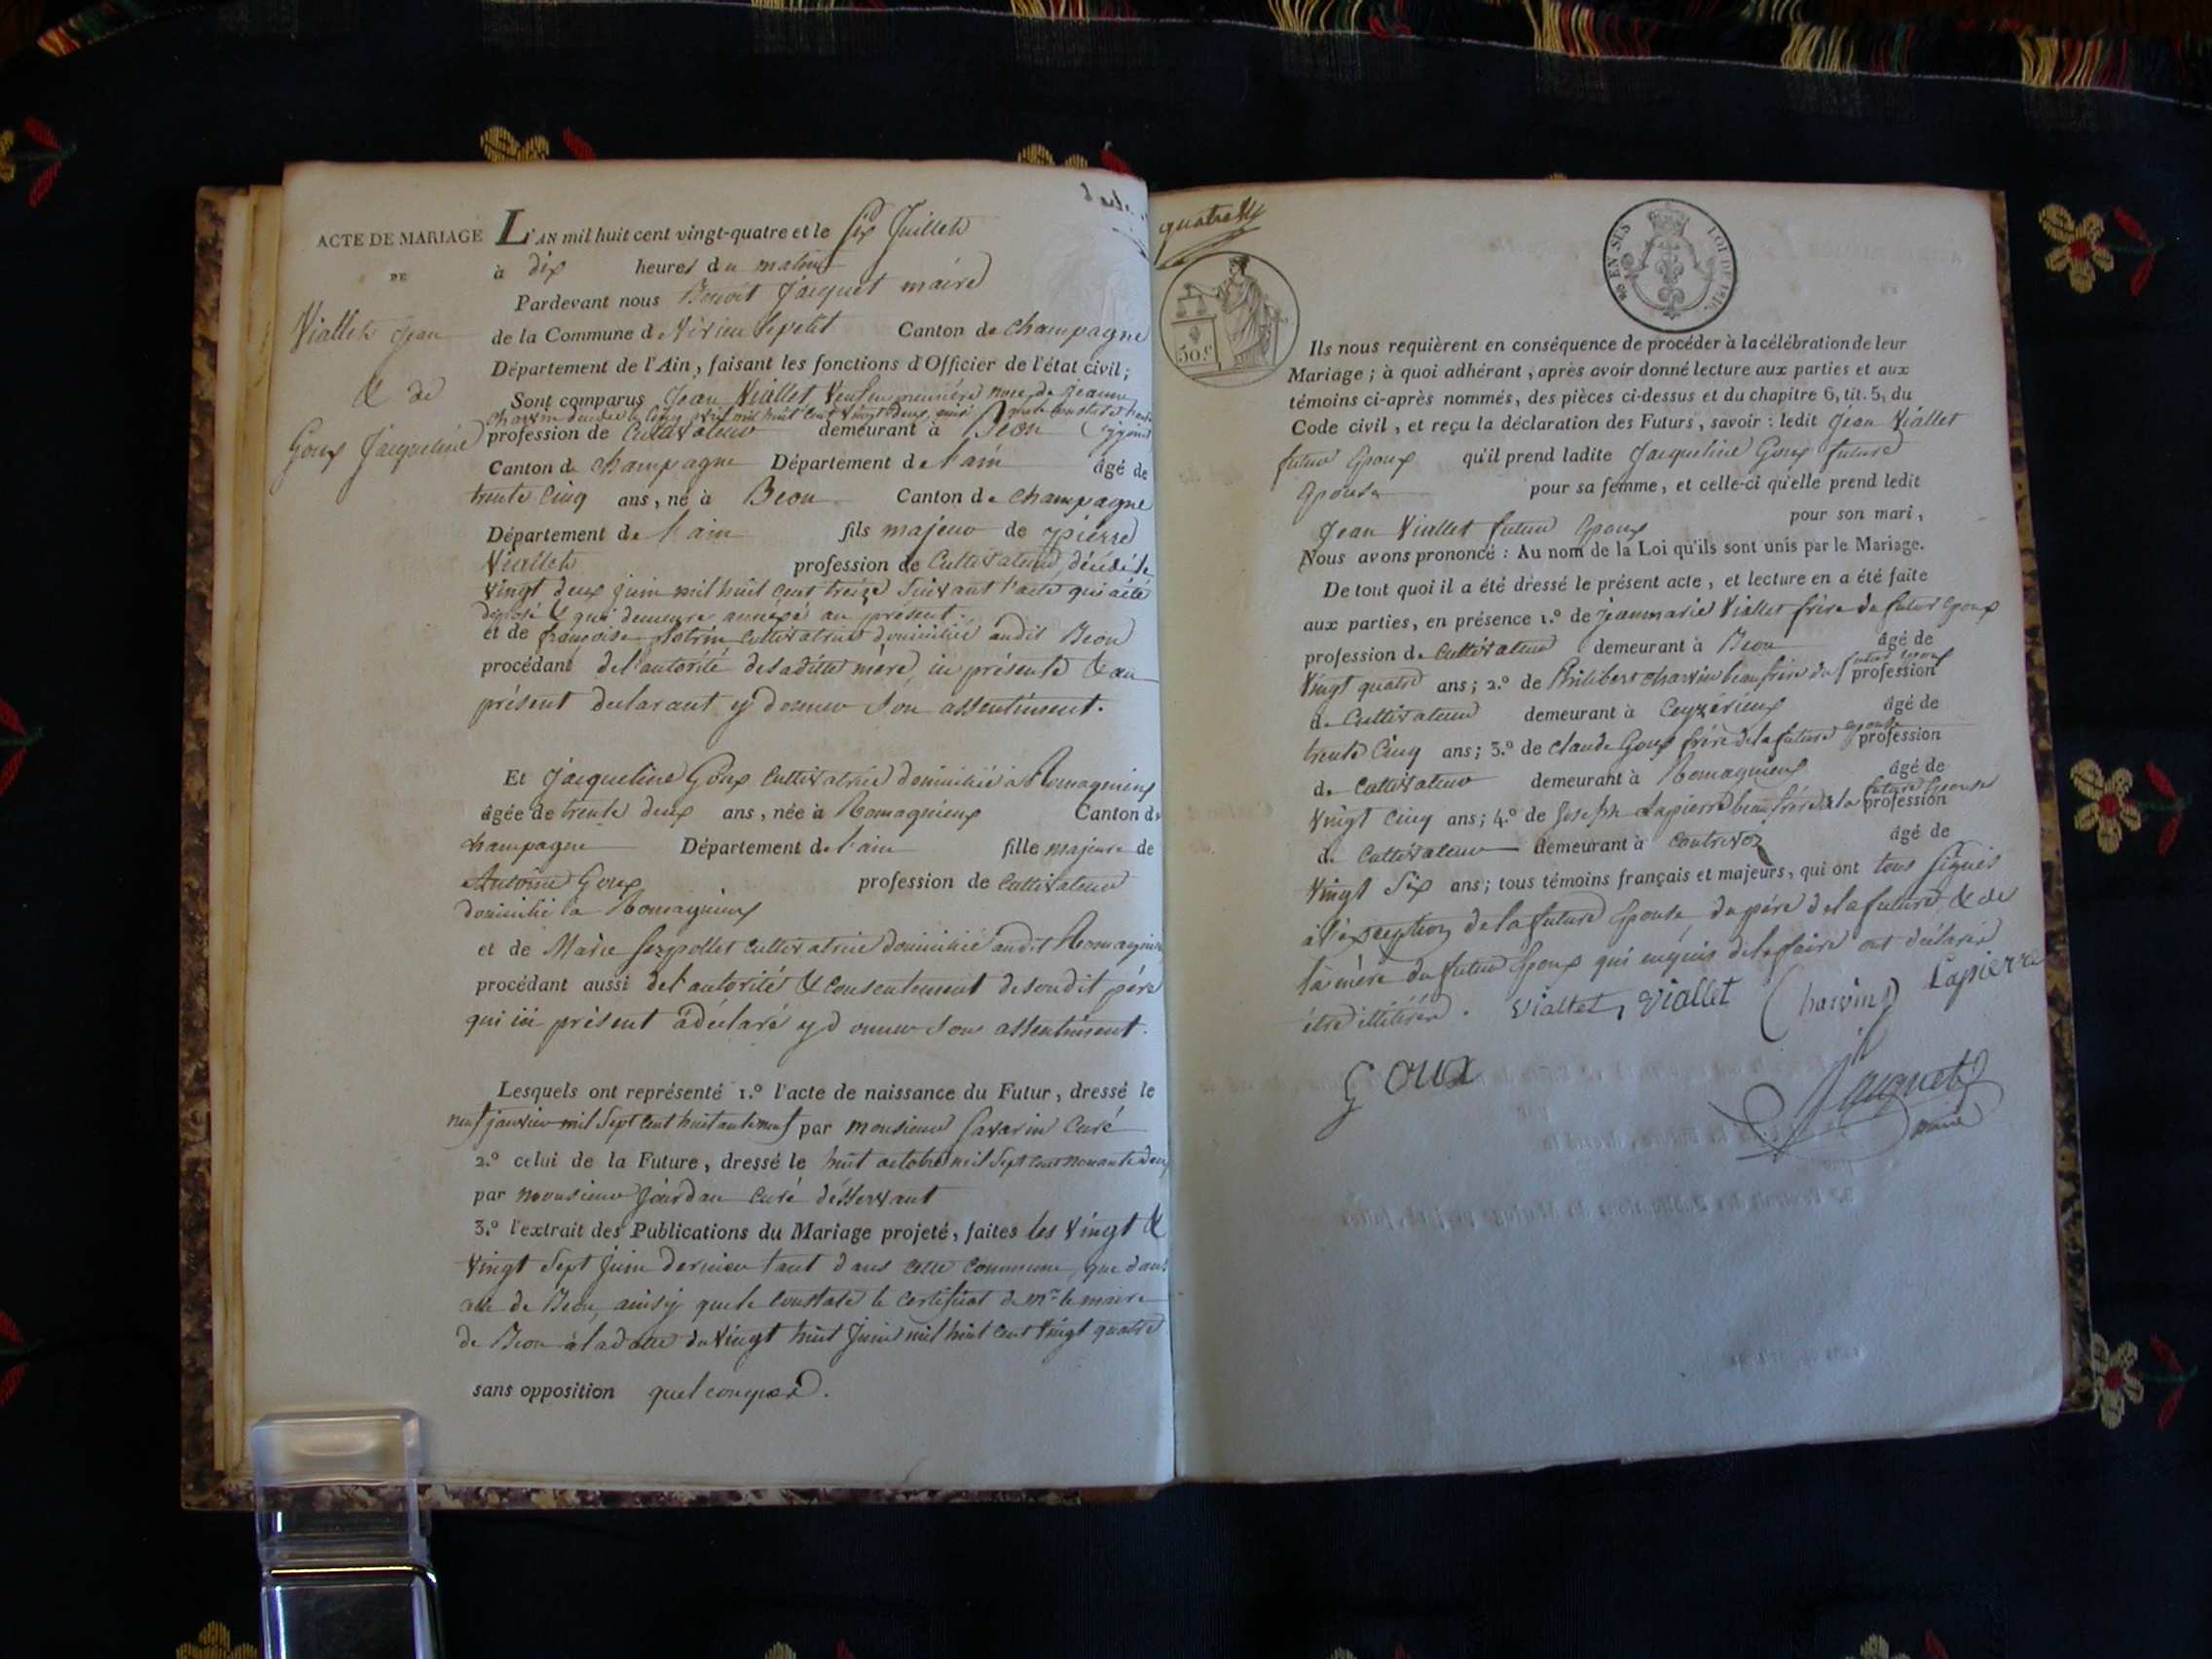 ACTE DE MARIAGE
DE
Viallet Jean
& de
Goux Jacqueline
L'AN mil huit cent vingt-quatre et le six Juillet
à dix heures du matin
Pardevant nous Benoit Jacquet maire
de la Commune d Virieu le petit Canton de champagne
Département de l'Ain, faisant les fonctions d'Officier de l'état civil;
Sont comparus Jean Viallet Veuf en première noce de jeanne
charvin décédée le cinq avril mil huit cent vingt deux
profession de Cultivateur demeurant à Beon
Canton de champagne Département de l'ain âgé de
trente Cinq ans, né à Beon Canton de champagne
Département de l'ain fils majeur de pierre
Viallet profession de Cultivateur, décédé le
vingt deux juin mil huit cent treize suivant l'acte qui a été
déposé & qui demeure annéxé au présent.
et de françoise cultivatrice domiciliée audit Beon
procédant de l'autorité de sadite mère, ici présente & au
présent déclarant y donner son assentiment.
Et Jacqueline Goux Cultivatrice domiciliée à Romagnieux
âgée de trente deux ans, née à Romagnieux Canton de
champagne Département de l'ain fille majeure de
Antoine Goux profession de Cultivateur
domicilié à Romagnieux
et de Marie cultivatrice domiciliée audit Romagnieux
procédant aussi de l'autorité & consentement de sondit père
qui ici présent a déclaré y donner son assentiment.
Lesquels ont représenté 1.º l'acte de naissance du Futur, dressé le
neuf janvier mil Sept Cent huitante neuf par monsieur Savarin Curé
2.º celui de la Future, dressé le huit octobre mil Sept Cent nonante deux
par monsieur Jourdan curé desservant
3.º l'extrait des Publications du Mariage projeté, faites les Vingt &
Vingt Sept Juin dernier tant dans cette commune, que dans
celle de Beon, ainsy que le Constate le Certificat de mr le maire
de Beon à la date du Vingt huit Juin mil huit Cent Vingt quatre
sans opposition quelconque.
quatre
50.c
LOI DE 1816
Ils nous requièrent en conséquence de procéder à la célébration de leur
Mariage; à quoi adhérant, après avoir donné lecture aux parties et aux
témoins ci-après nommés, des pièces ci-dessus et du chapitre 6, tit. 5, du
Code civil, et reçu la déclaration des Futurs, savoir: ledit Jean Viallet
futur Epoux qu'il prend ladite Jacqueline Goux future
Epouse pour sa femme, et celle-ci qu'elle prend ledit
Jean Viallet futur Epoux pour son mari,
Nous avons prononcé: Au nom de la Loi qu'ils sont unis par le Mariage.
De tout quoi il a été dressé le présent acte, et lecture en a été faite
aux parties, en présence 1.º de jeanmarie Viallet frère du futur Epoux
profession de Cultivateur demeurant à Beon âgé de
Vingt quatre ans; 2.º de Philibert charvin beaufrère du futur Epoux profession
de Cultivateur demeurant à Ceyzérieux âgé de
trente Cinq ans; 3.º de claude Goux frère de la future Epouse profession
de Cultivateur demeurant à Romagnieux âgé de
Vingt Cinq ans; 4.º de Joseph Lapierre beaufrère de la future Epouse profession
de Cultivateur demeurant à Contrevoz âgé de
Vingt Six ans; tous témoins français et majeurs, qui ont tous signés
à l'exception de la future Epouse, du père de la future & de
la mère du futur Epoux qui enquis de le faire ont déclarer
être illitérés. Viallet, Viallet Charvin Lapierre
Goux Jacquet
maire